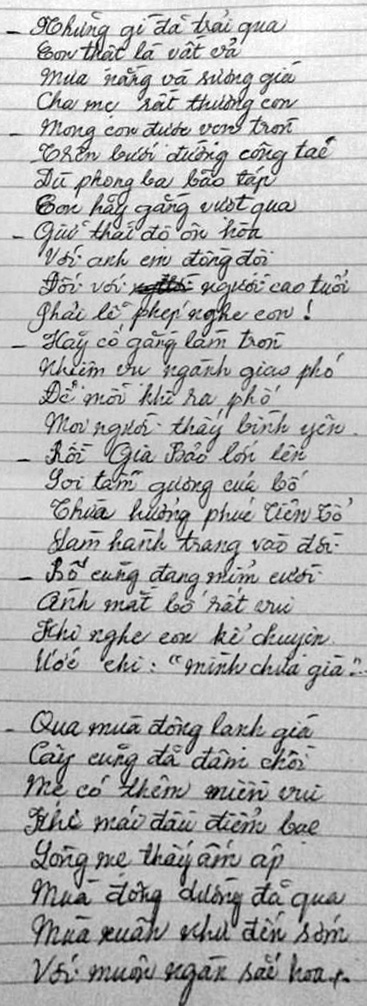 - Những gì đã trải qua
Con thật là vất vả
Mưa nắng và sương giá
Cha mẹ rất thương con
- Mong con được vẹn tròn
Trên bước đường công tác
Dù phong ba bão táp
Con hãy gắng vượt qua
- Giữ thái độ ôn hòa
Với anh em đồng đội
Đối với người cao tuổi
Phải lễ phép nghe con!
- Hãy cố gắng làm tròn
Nhiệm vụ ngành giao phó
Để mỗi khi ra phố
Mọi người thấy bình yên.
- Rồi Gia Bảo lớn lên
Soi tấm gương của bố
Thừa hưởng phúc Tiên Tổ
Làm hành trang vào đời
- Bố cũng đang mỉm cười
Ánh mắt bố rất vui
Khi nghe con kể chuyện
Ước chi: "mình chưa già".
- Qua mùa đông lạnh giá
Cây cũng đã đâm chồi
Mẹ có thêm niềm vui
Khi mái đầu điểm bạc
Lòng mẹ thấy ấm áp
Mùa đông dường đã qua
Mùa xuân như đến sớm
Với muôn ngàn sắc hoa.